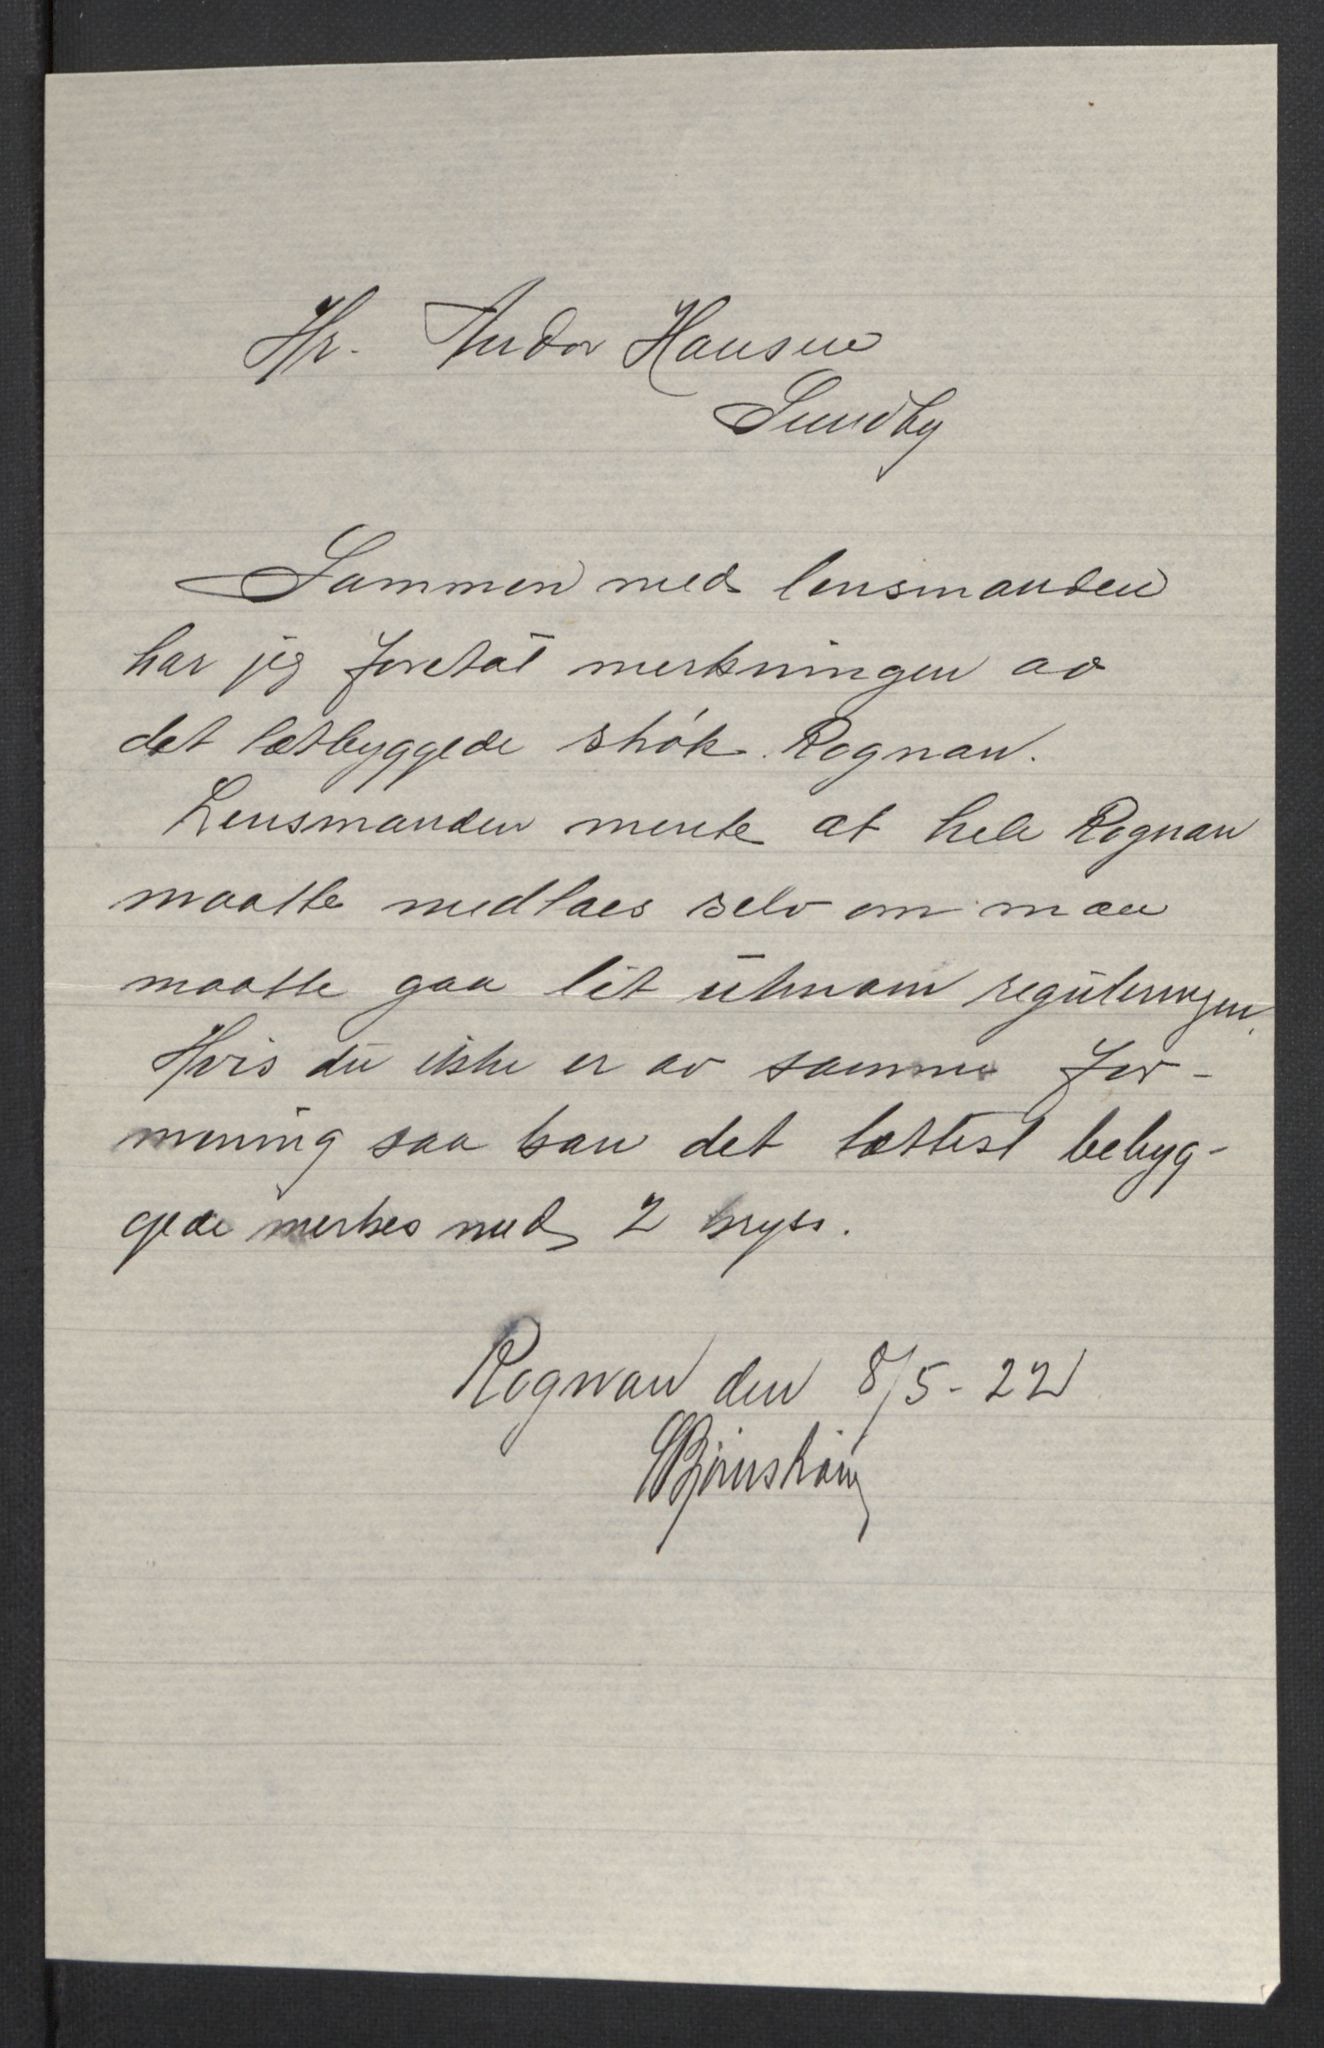 Hr. Andor Hansen
Sundby
Sammen med lensmanden
har jeg foretat merkningen av
det tætbyggede strøk Rognan.
Lensmanden mente at hele Rognan
maatte medtaes selv om man
maatte gaa lit utenom reguleringen.
Hvis du ikke er av samme for-
mening saa kan det tættest bebyg-
gede merkes med 2 kryss.
Rognan den 8/5-22